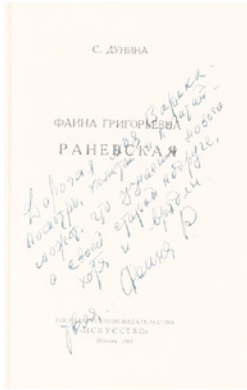 С. ДУНИНА
ФАИНА ГРИГОРЬЕВНА
РАНЕВСКАЯ
Дорогая
посмотри,
может, что узнаешь нового
о своей старой подруге,
хотя и
Фаина Р
ГОСУДАРСТВЕННОЕ ИЗДАТЕЛЬСТВО
«ИСКУССТВО»
Москва